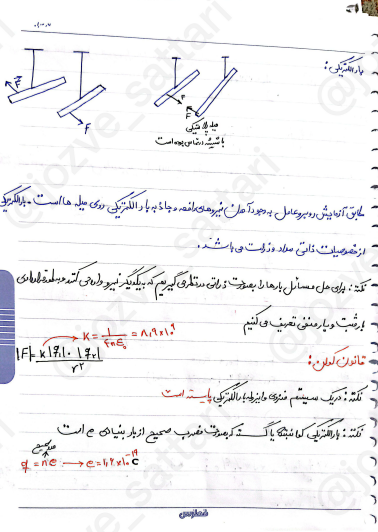 بار الکتریکی:
F
F
F
F
میله پلاستیکی
یا شیشه ای خاص بوده است
طبق آزمایش روبرو عامل به وجود آمدن نیروهای دافعه و جاذبه بار الکتریکی روی میله ها است. بار الکتریکی
از خصوصیات ذاتی مواد و ذرات می باشد.
نکته: برای حل مسائل بارها را بصورت ذراتی در نظر می گیریم که به یکدیگر نیرو وارد می کنند و بطور قراردادی
بار مثبت و بار منفی تعریف می کنیم
قانون کولن:
K = 1/4πε₀ = 8,9×10⁹
|F| = K|q₁|.|q₂|/r²
نکته: در یک سیستم منزوی بار الکتریکی پایسته است
نکته: بار الکتریکی کوانتیده است که بصورت مضرب صحیح از بار بنیادی e است
عدد صحیح
q = ne → e = 1,6×10⁻¹⁹ C
jozve_sattari